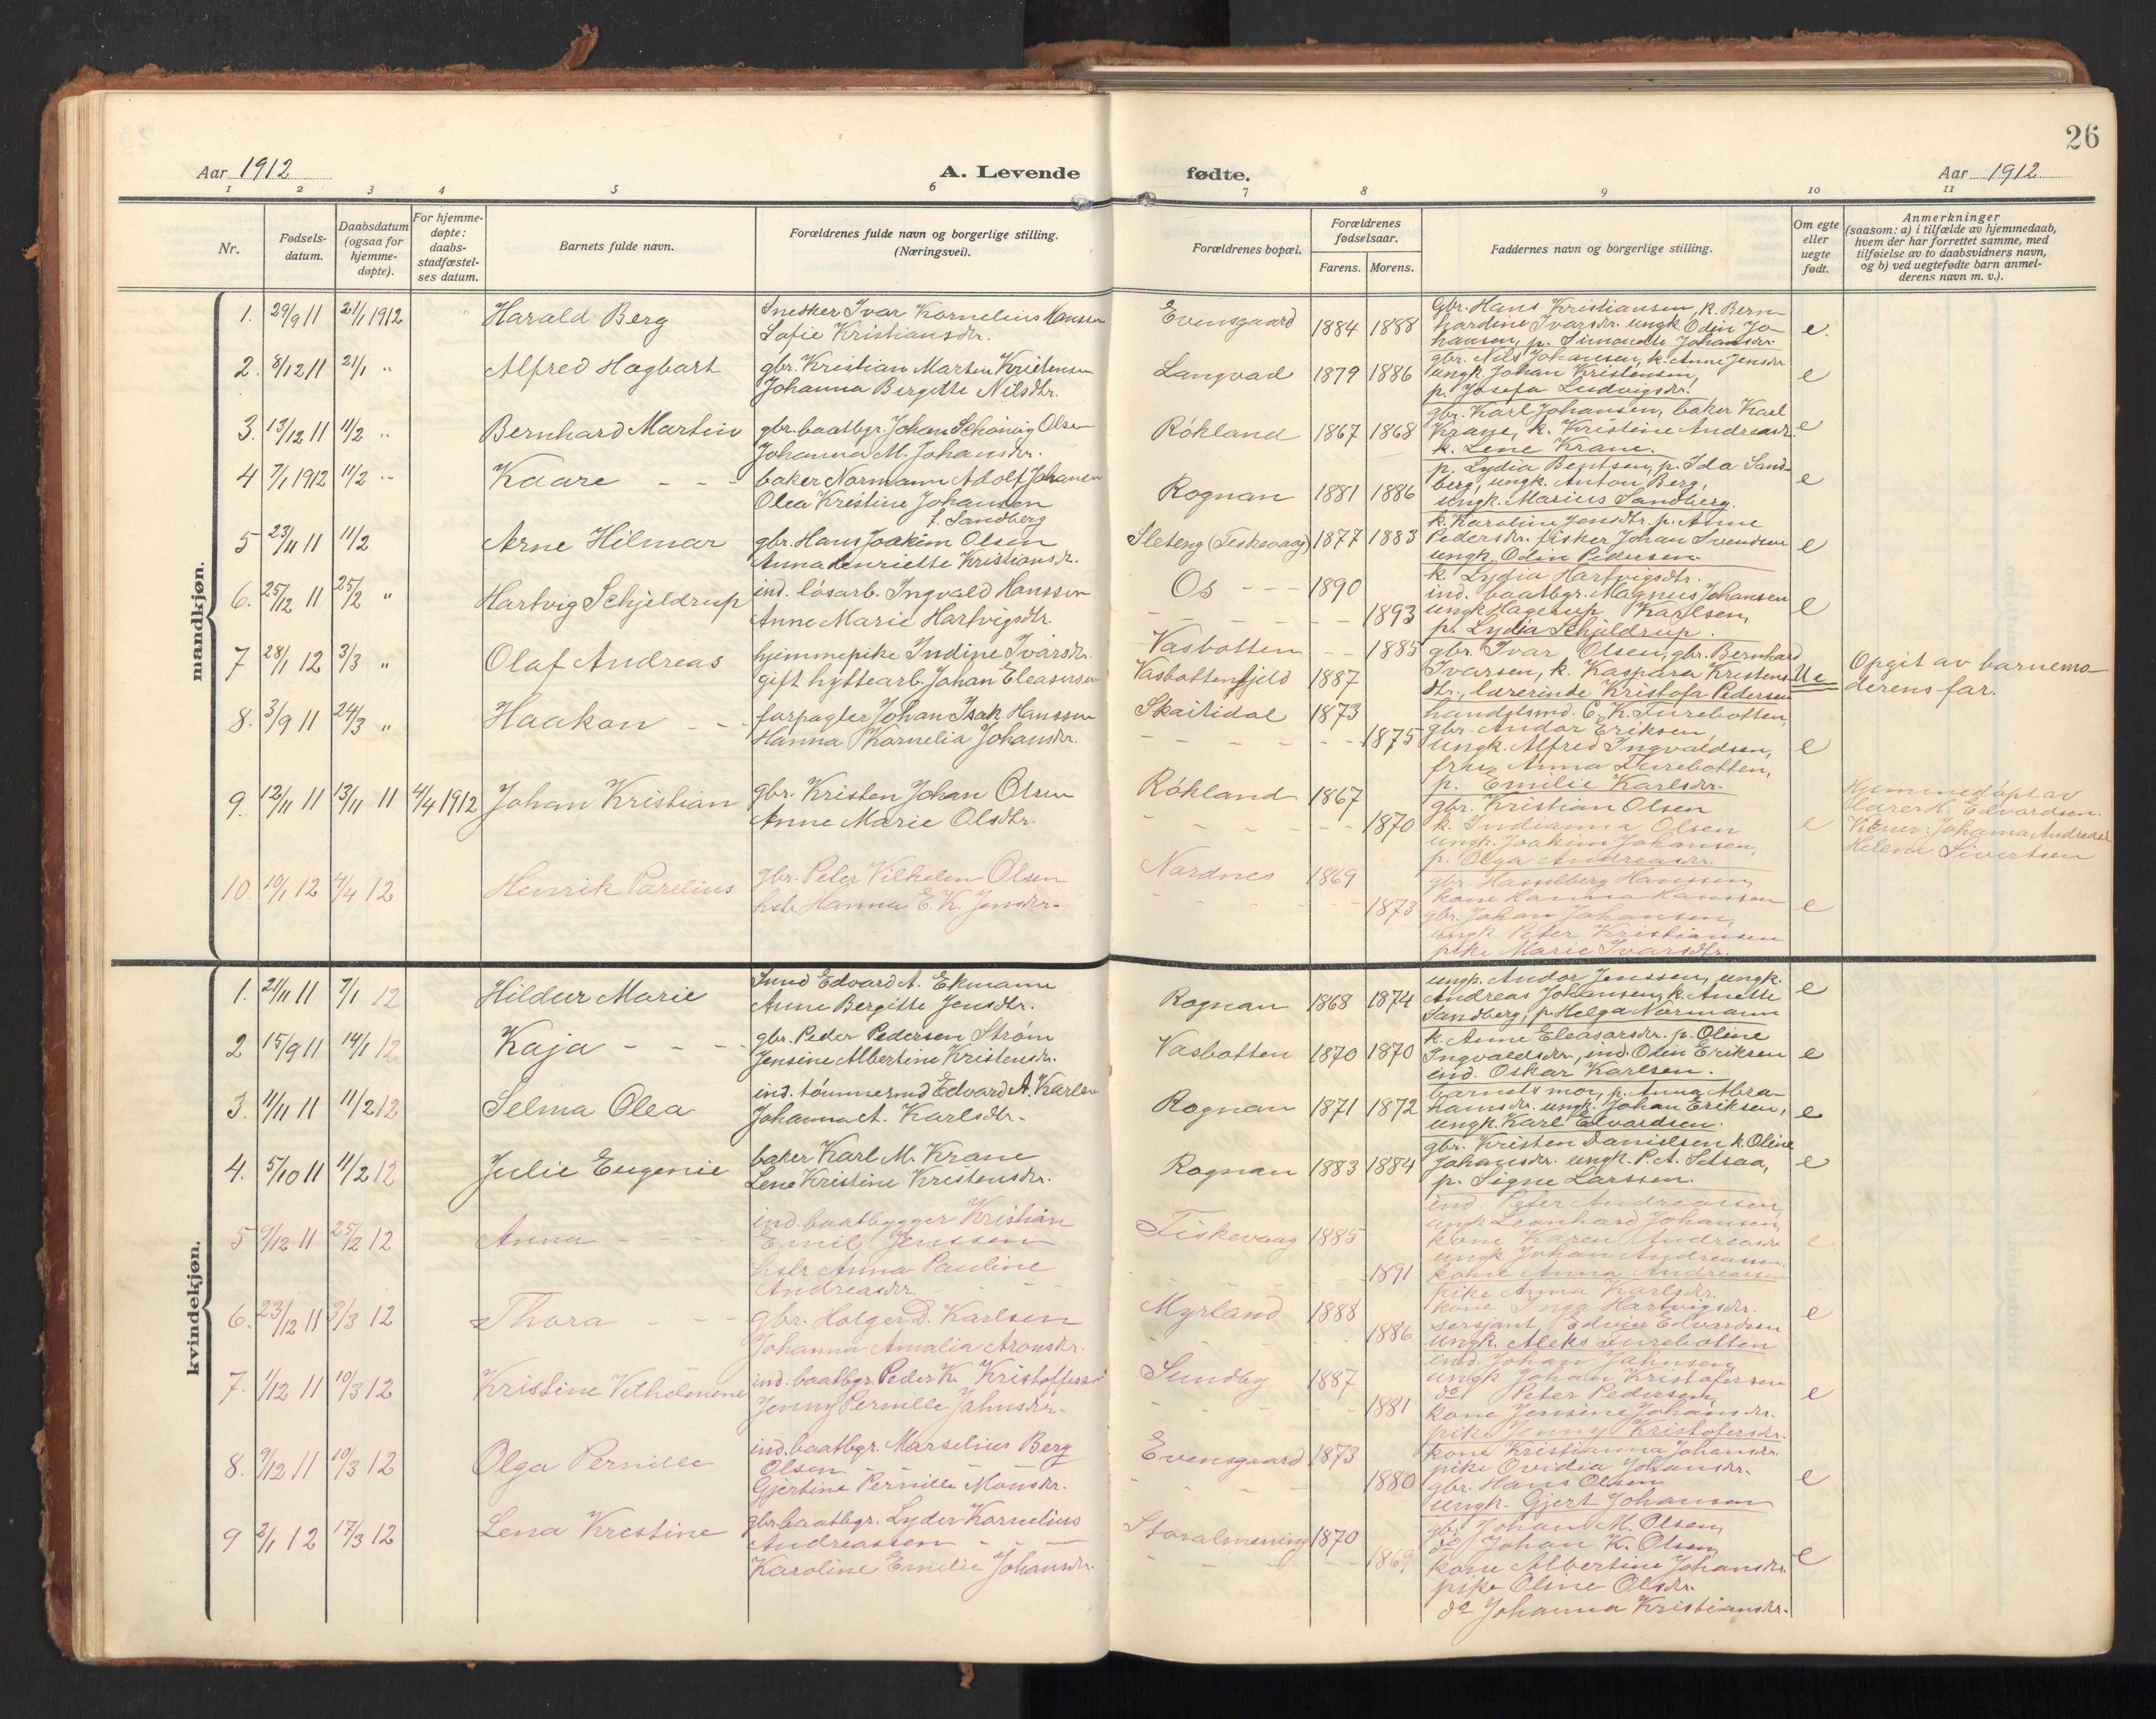 26
Aar 1912
A. Levende
fødte.
Aar 1912
1 2 3 4 5 6 7 8 9 10 11
Nr.
Fødsels-
datum.
Daabsdatum
(ogsaa for
hjemme-
døpte).
For hjemme-
døpte:
daabs-
stadfæstel-
ses datum.
Barnets fulde navn.
Forældrenes fulde navn og borgerlige stilling.
(Næringsvei).
Forældrenes bopæl.
Forældrenes
fødselsaar.
Farens. Morens.
Faddernes navn og borgerlige stilling.
Om egte
eller
uegte
født.
Anmerkninger
(saasom: a) i tilfælde av hjemmedaab,
hvem der har forrettet samme, med
tilføielse av to daabsvidners navn,
og b) ved uegtefødte barn anmel-
derens navn m. v.).
mandkjøn.
1. 29/9 11 21/1 1912 Harald Berg
Snedker Ivar Kornelius Hanssen
Sofie Kristiansdtr.
Evensgaard 1884 1888
Gbr. Hans Kristiansen, k. Bern-
hardine Ivarsdr. ungk Odin Jo-
hansen, p. Simonette Johansdr.
e.
2. 8/12 11 21/1 " Alfred Hagbart
gbr. Kristian Marten Kristensen
Johanna Bergitte Nilsdtr.
Langvad 1879 1886
gbr. Nils Johansen, k. Anne Jensdr
ungk. Johan Kristensen,
p. Josefa Ludvigsdr.
e
3. 13/12 11 11/2 " Bernhard Martin
gbr. baatbgr. Johan Schönig Olsen
Johanna M. Johansdr.
Røkland 1867 1868
gbr. Karl Johansen, baker Karl
Krane, k. Kristine Andreasdr.
k. Lene Krane.
e
4 7/1 1912 11/2 " Kaare - - -
baker Normann Adolf Johansen
Olea Kristine Johansen
f. Sandberg
Rognan 1881 1886
p. Lydia Bentsen, p. Ida Sand-
berg, ungk. Anton Berg,
ungk. Marius Sandberg.
e
5 23/11 11 11/2 Arne Hilmar
gbr. Hans Joakim Olsen
Anna Henriette Kristiansdr.
Sleteng (Fiskevaag) 1877 1883
k. Karoline Jensdtr. p. Anne
Pedersdr. fisker Johan Svendsen
ungk. Odin Pedersen.
e
6. 25/12 11 25/2 " Hartvig Schjeldrup
ind. løsarb. Ingvald Hanssen
Anne Marie Hartvigsdtr.
Os - - - 1890
1893
k. Lydia Hartvigsdtr.
ind. baatbgr. Magnus Johansen
ungk Hagerup Karlsen,
p. Lydia Schjeldrup.
e
7 28/1 12 3/3 " Olaf Andreas
hjemmepike Indine Ivarsdr.
gift hyttearb. Johan Eleasersen
Vasbotten - - 1885
Vasbottenfjeld 1887
gbr. Ivar Olsen, gbr. Bernhard
Ivarsen, k. Kaspara Kristens-
dtr., lærerinde Kristofa Pedersen
Ue
Opgit av barnemo-
derens far.
8. 3/9 11 24/3 " Haakon - -
forpagter Johan Isak Hanssen
Hanna Kornelia Johansdr.
Skaitidal 1873
1875
handelsmd. C. K. Furebotten,
gbr. Andor Eriksen,
ungk. Alfred Ingvaldsen,
fru Anna Furebotten,
p. Emilie Karlsdr.
e
9. 12/11 11 13/11 11 4/4 1912 Johan Kristian
gbr. Kristen Johan Olsen
Anne Marie Olsdtr.
Røkland 1867
1870
gbr. Kristian Olsen
k. Indianna Olsen
ungk. Joakim Johansen,
p. Olga Andreasdr.
e
Hjemmedøpt av
lærer H. Edvardsen.
Vitner: Johanna Andreasd
Helene Sivertsen
10. 10/1 12 4/4 12 Henrik Parelius
gbr. Peter Vilhelm Olsen
hstr Hanna E. K. Jensdr.
Nordnes 1869
1873
gbr. Hasselberg Hanssen,
kone Hanna Hanssen
gbr. Johan Johansen,
ungk. Peter Kristiansen
pike Marie Ivarsdtr.
e
kvindekjøn.
1. 21/11 11 7/1 12 Hildur Marie
Smed Edvard A. Ekmann
Anne Bergitte Jensdtr.
Rognan 1868 1874
ungk. Andor Jenssen, ungk.
Andreas Johansen, k. Anette
Sandberg, p Helga Normann
e
2 15/9 11 14/1 12 Kaja - - -
gbr. Peder Pedersen Strøm
Jensine Albertine Kristensdr.
Vasbotten 1870 1870
k. Anne Eleasarsdr. p. Oline
Ingvaldsdr., ind. Odin Eriksen
ind. Oskar Karlsen.
e
3. 11/11 11 11/2 12 Selma Olea
ind. tømmermd Edvard A. Karlsen
Johanna A. Karlsdtr.
Rognan 1871 1872
barnets mor, p. Anna Abra-
hamsdr. ungk. Johan Eriksen,
ungk. Karl Edvardsen.
e
4. 5/10 11 11/2 12 Julie Eugenie
baker Karl M. Krane
Lene Kristine Kristensdr.
Rognan 1883 1884
gbr. Kristen Danielsen k. Oline
Johansdr. ungk. P. A. Setsaa,
p. Signe Larssen.
e
5 9/12 11 25/2 12 Anna - - -
ind. baatbygger Kristian
Emil Jenssen
hstr Anna Pauline
Andreasdr.
Fiskevaag 1885
1891
ind. Peter Andreassen,
ungk Leonhard Johansen,
kone Karen Andreasdr
ungk. Johan Andreassen,
kone Anna Andreassen
e
6. 23/12 11 3/3 12 Thora - - -
gbr. Holger D. Karlsen
Johanna Amalia Aronsdr.
Myrland 1888
1886
pike Anna Karlsdr.
kone Inga Hartvigsdr.
sersjant Edvin Edvardsen
ungk. Aleks Furebotten
e
7. 1/12 11 10/3 12 Kristine Vilhelmene
ind. baatbgr. Peder K. Kristoffersen
Jenny Pernille Jahnsdr.
Sundby 1887
1881
ind. Johan Jahnsen,
ungk Johan Kristofersen
do Peter Pedersen,
kone Jensine Johansdr.
pike Jenny Kristofersdr.
e
8. 9/12 11 10/3 12 Olga Pernille
ind. baatbgr. Marselius Berg
Olsen - - -
Gjertine Pernille Monsdr.
Evensgaard 1873
1880
kone Kristianna Johansdr.
pike Ovidia Johansdr.
gbr. Hans Olsen
ungk. Gjert Johansen
e
9 2/1 12 17/3 12 Lena Kristine
gbr. baatbgr. Lyder Kornelius
Andreassen - -
Karoline Emilie Johansdr.
Storalmening 1870
1869
gbr. Johan M. Olsen,
do Johan K. Olsen,
kone Albertine Johansdr.
pike Oline Olsdr.
do Johanna Kristiansdr.
e